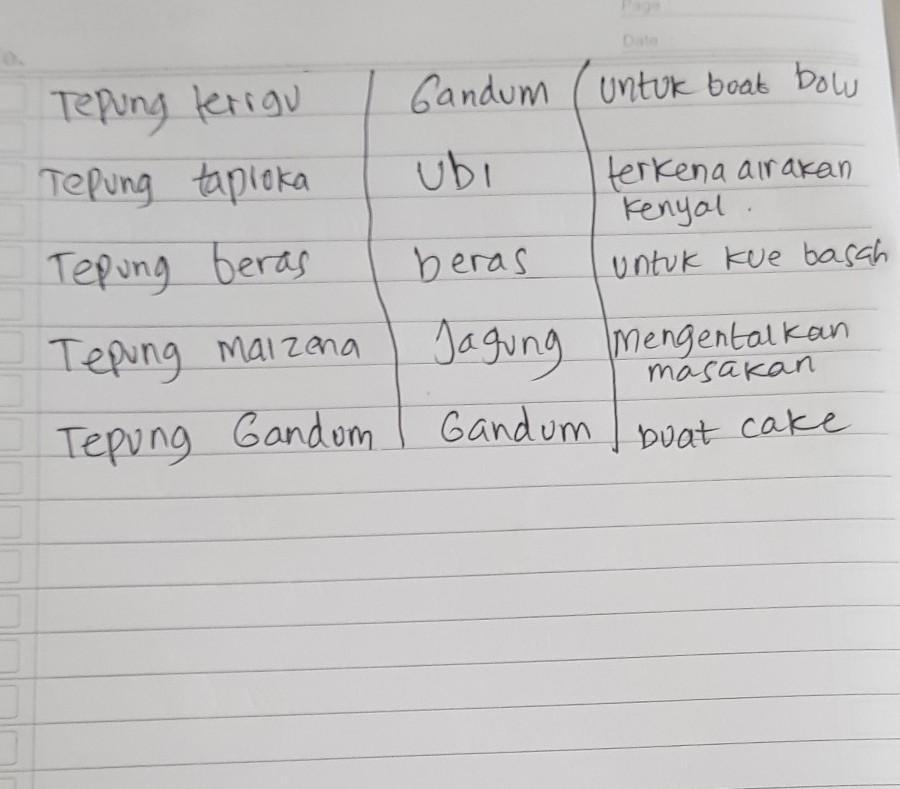 Page
Date
Tepung terigu Gandum untuk buat bolu
Tepung tapioka Ubi terkena air akan
kenyal.
Tepung beras beras untuk kue basah
Tepung maizena Jagung Mengentalkan
masakan
Tepung Gandum Gandum buat cake